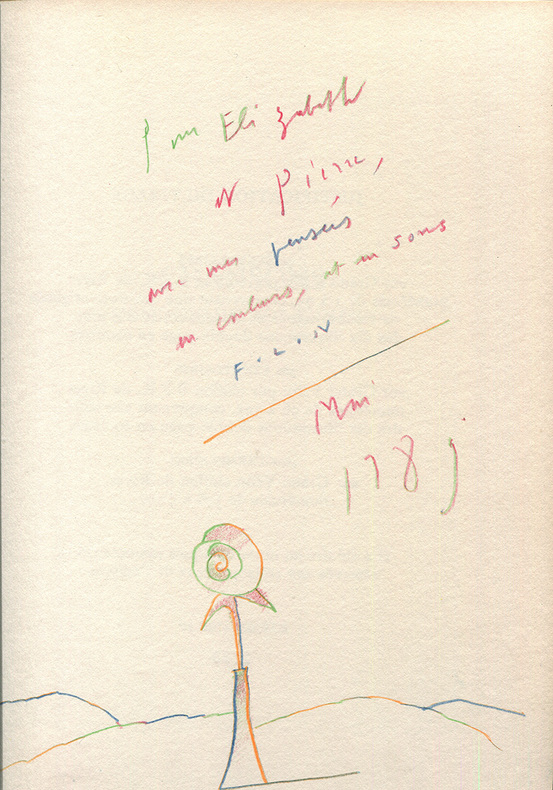 Pour Elizabeth
et Pierre,
avec mes pensées
en couleurs, et en sons
F. L. IV
Mai